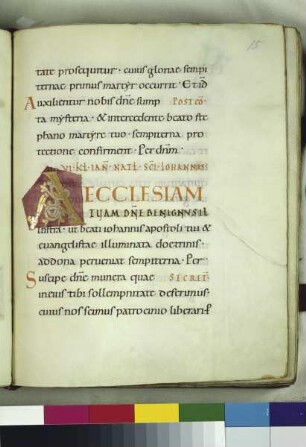 15
tate prosequitur · cuius gloriae sempi
ternae primus martyr occurrit · Et id
Auxilientur nobis dne sump POST CO
ta mysteria · & intercedente beato ste
phano martyre tuo · sempiterna pro
tectione confirment · Per dnm ·
VI · KL · IAN · NATL · SCI · IOHANNIS
ECCLESIAM
TUAM DNE BENIGNUS IL
lustra · ut beati iohannis apostoli tui &
euangelistae illuminata doctrinis ·
ad dona perueniat sempiterna · Per
Suscipe dne munera quae SECRET
in eius tibi sollempnitate deferimus ·
cuius nos scimus patrocinio liberari ·